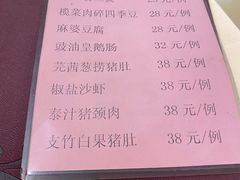 28 元/例
榄菜肉碎四季豆 28 元/例
麻婆豆腐 28 元/例
豉油皇鹅肠 32 元/例
芫茜葱捞猪肚 38 元/例
椒盐沙虾 38 元/例
泰汁猪颈肉 38 元/例
支竹白果猪肚 38 元/例